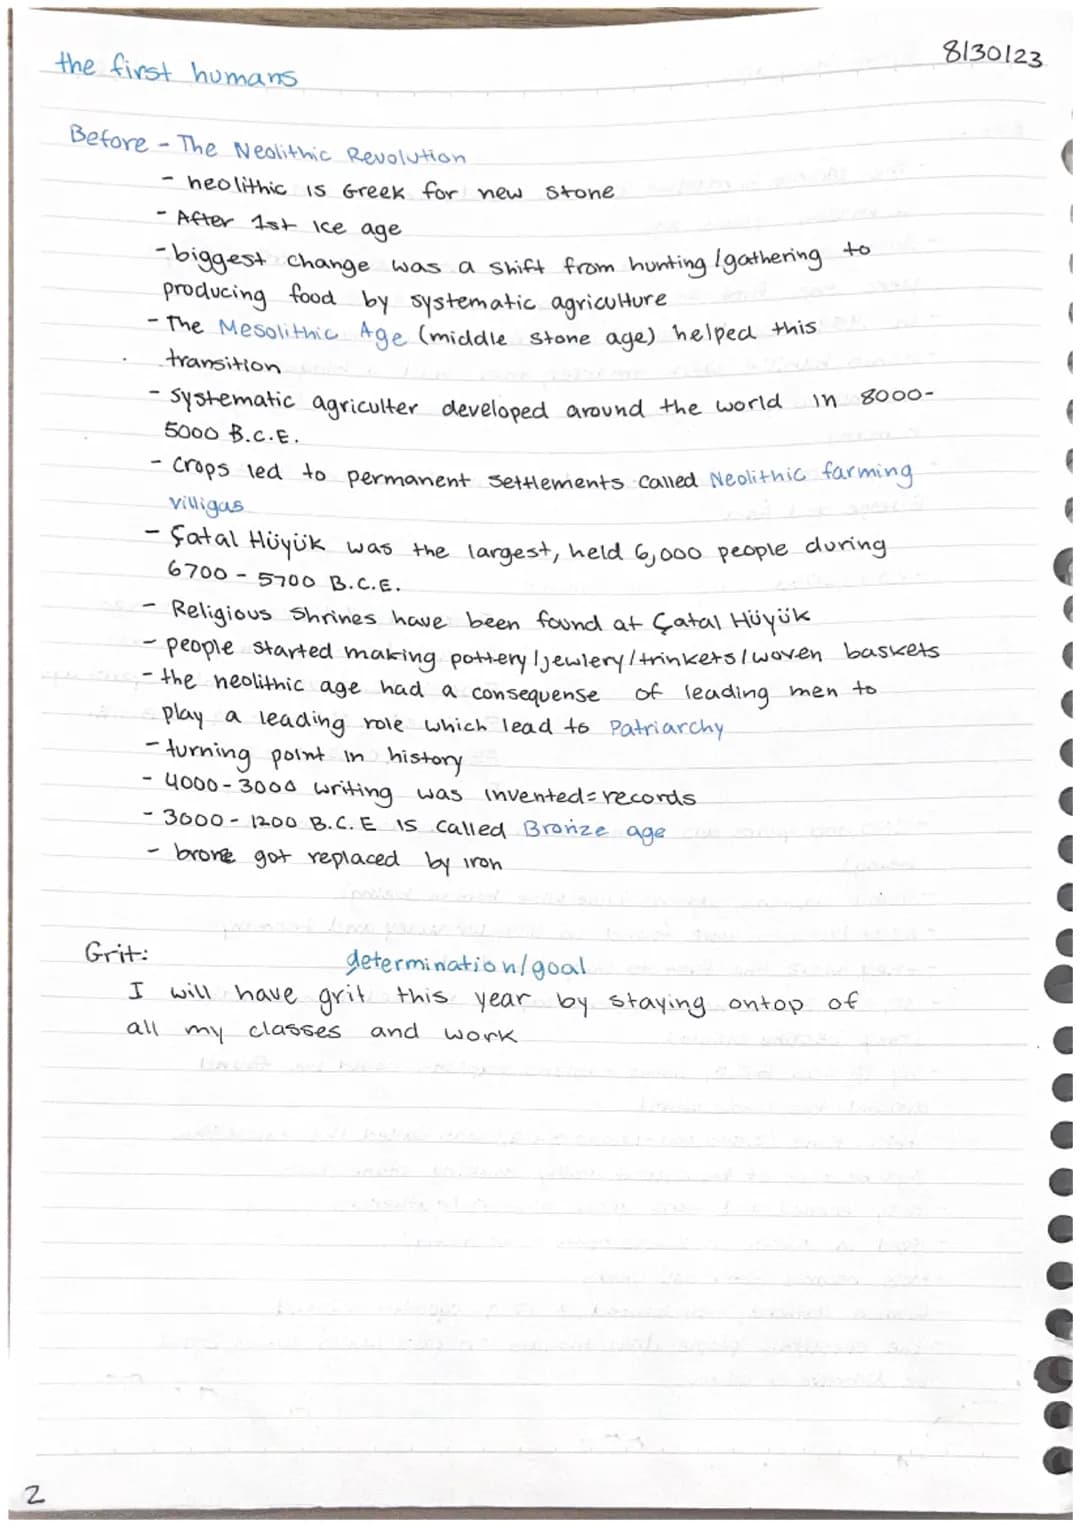 the first humans
8/30/23
Before - The Neolithic Revolution
- neolithic is Greek for new stone
- After 1st ice age
- biggest change was a shift from hunting/gathering to
producing food by systematic agriculture
- The Mesolithic Age (middle stone age) helped this
transition
- systematic agriculter developed around the world in 8000-
5000 B.C.E.
- crops led to permanent settlements called Neolithic farming
villigas
- Çatal Hüyük was the largest, held 6,000 people during
6700 - 5700 B.C.E.
- Religious shrines have been found at Çatal Hüyük
- people started making pottery/jewlery/trinkets/woven baskets
- the neolithic age had a consequense of leading men to
play a leading role which lead to Patriarchy
- turning point in history
- 4000-3000 writing was invented=records
- 3000 - 1200 B.C.E is called Bronze age
- bronze got replaced by iron
Grit:
determination/goal
I will have grit this year by staying ontop of
all my classes and work
2